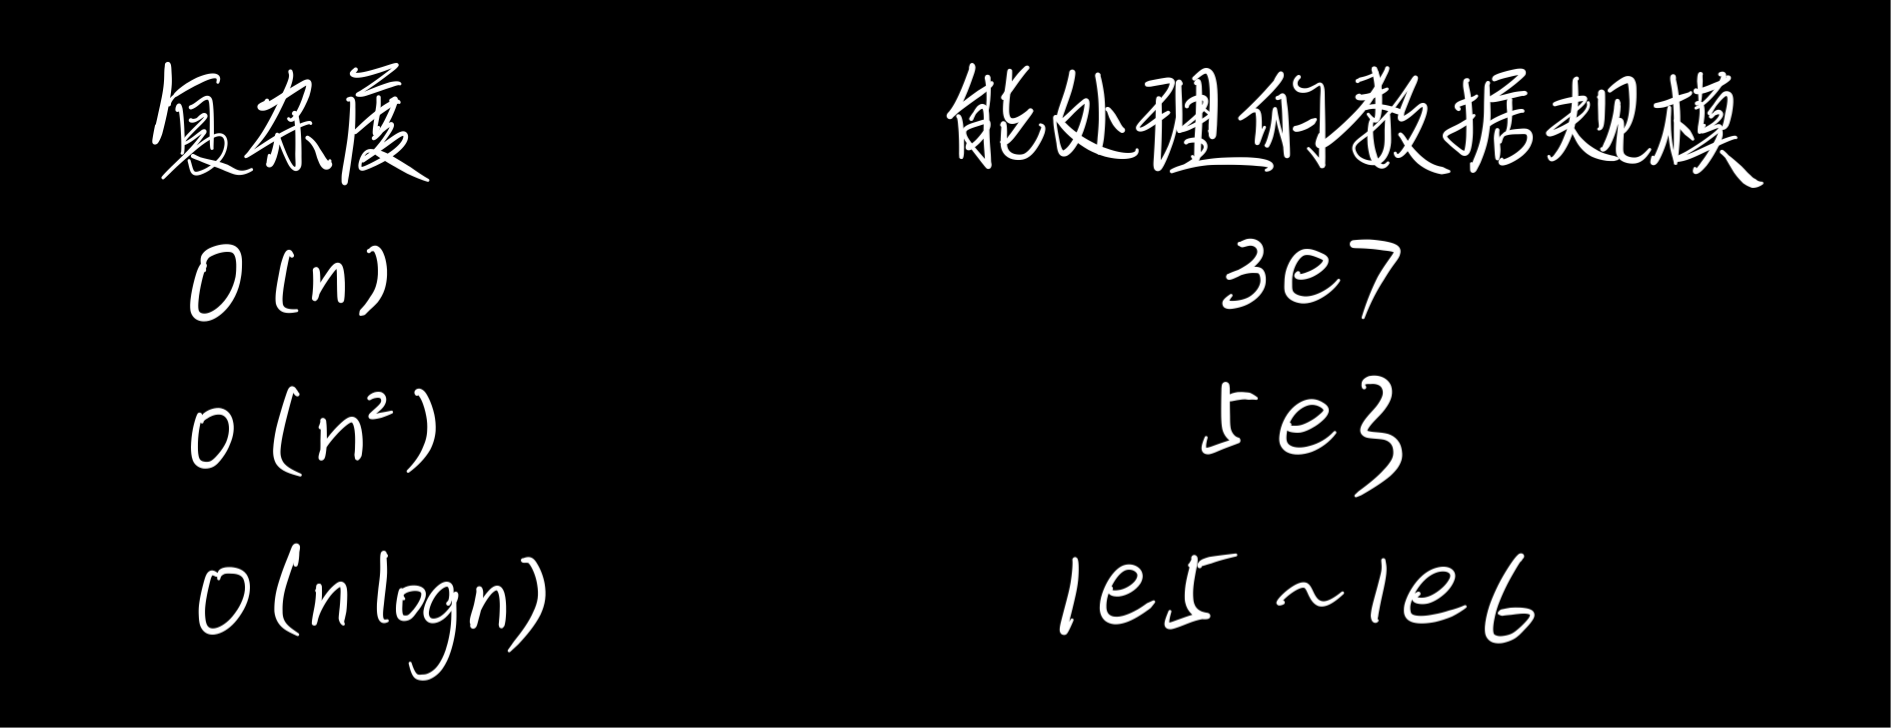 复杂度 能处理的数据规模
O(n) 3e7
O(n²) 5e3
O(nlogn) 1e5~1e6